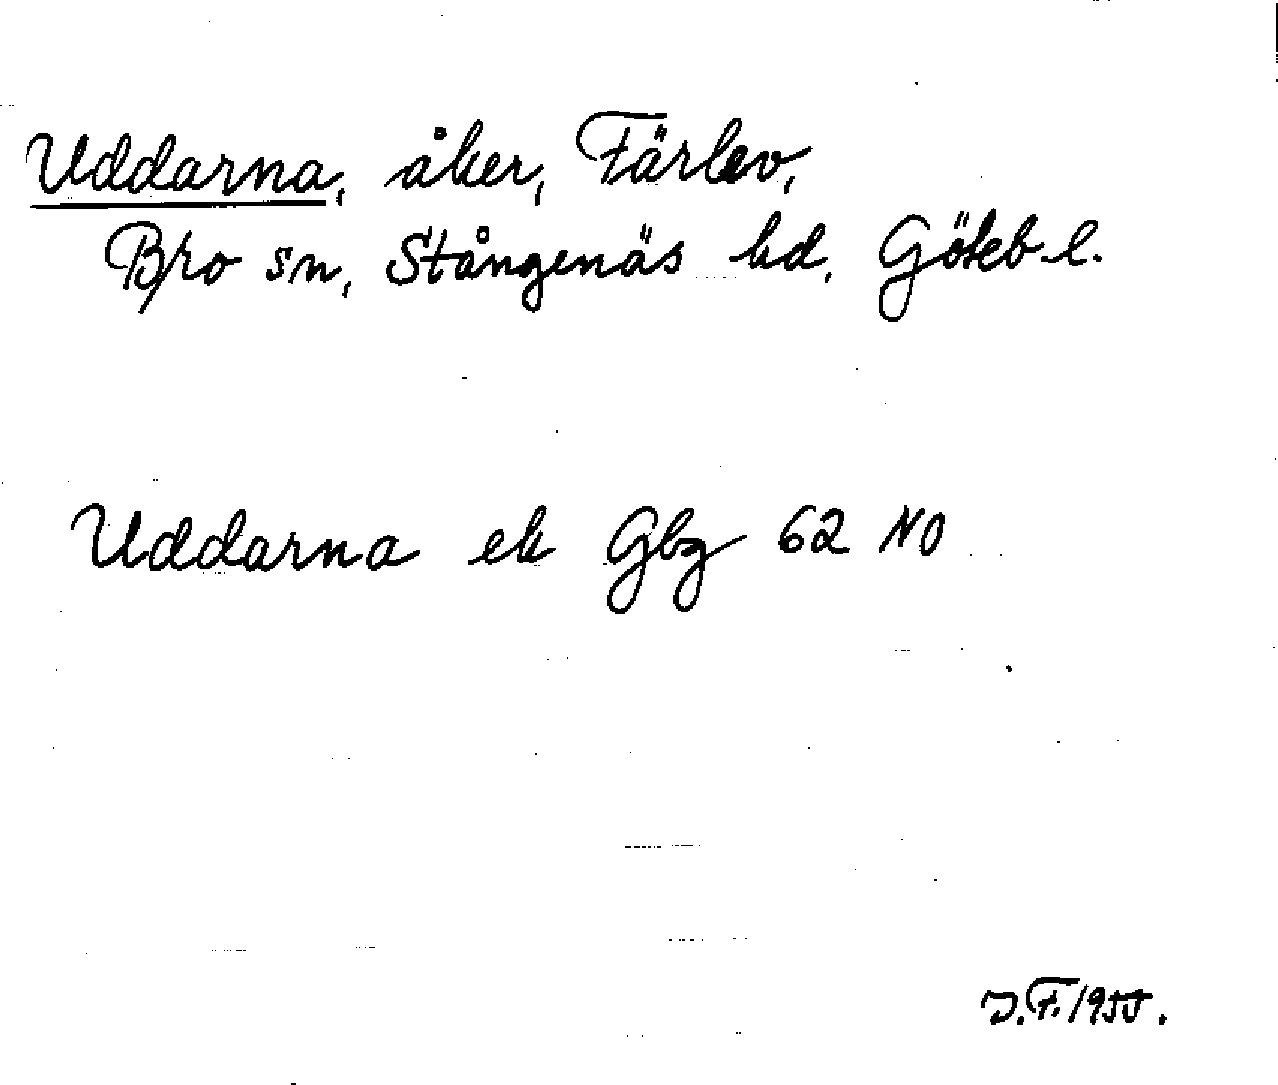 Uddarna, åker, Färlev,
Bro sn, Stångenäs hd, Göteb l.
Uddarna ek Gbg 62 NO
J.F. 1955.